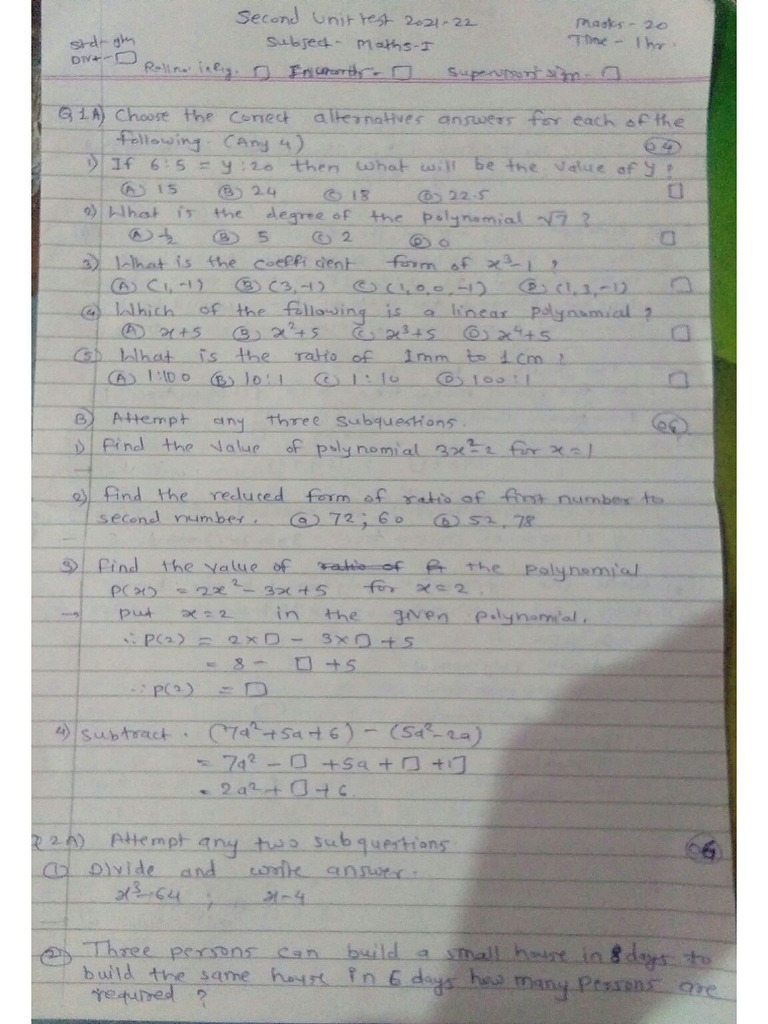 Second Unit test 2021-22 Marks - 20
Std - 9th Subject - Maths-I Time - 1hr.
Div - □
Roll no in fig. □ □ Supervisor's sign - □
Q1A) Choose the correct alternatives answers for each of the
following. (Any 4) 04
1) If 6:5 = y:20 then what will be the value of y?
(A) 15 (B) 24 (C) 18 (D) 22.5 □
2) What is the degree of the polynomial √7?
(A) ½ (B) 5 (C) 2 (D) 0 □
3) What is the coefficient form of x³-1?
(A) (1,-1) (B) (3,-1) (C) (1,0,0,-1) (D) (1,3,-1) □
(4) Which of the following is a linear polynomial?
(A) x+5 (B) x²+5 (C) x³+5 (D) x⁴+5 □
(5) What is the ratio of 1mm to 1cm?
(A) 1:100 (B) 10:1 (C) 1:10 (D) 100:1 □
B) Attempt any three subquestions.
1) find the value of polynomial 3x²-2 for x=1
2) find the reduced form of ratio of first number to
second number. (a) 72; 60 (b) 52, 78
3) find the value of ratio of the polynomial
P(x) = 2x²-3x+5 for x=2.
→ put x=2 in the given polynomial.
∴ P(2) = 2×□ - 3×□ +5
= 8 - □ +5
∴ P(2) = □
4) subtract. (7a²+5a+6) - (5a²-2a)
= 7a² - □ +5a + □ + □
= 2a² + □ + 6.
Q 2A) Attempt any two subquestions 06
(1) Divide and write answer.
x³-64 ; x-4
(2) Three persons can build a small house in 8 days to
build the same house in 6 days how many persons are
required?